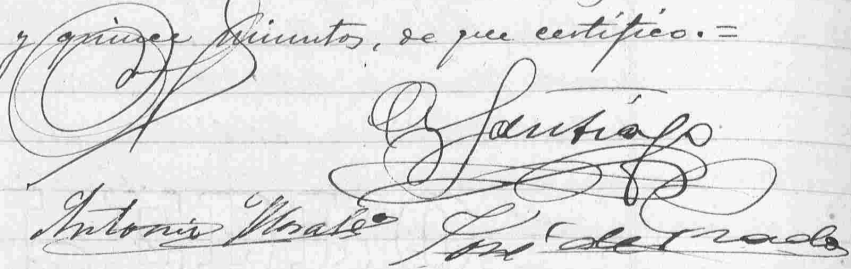 y quince minutos, de que certifico.=
Santiago
Antonio Morales José de Prado